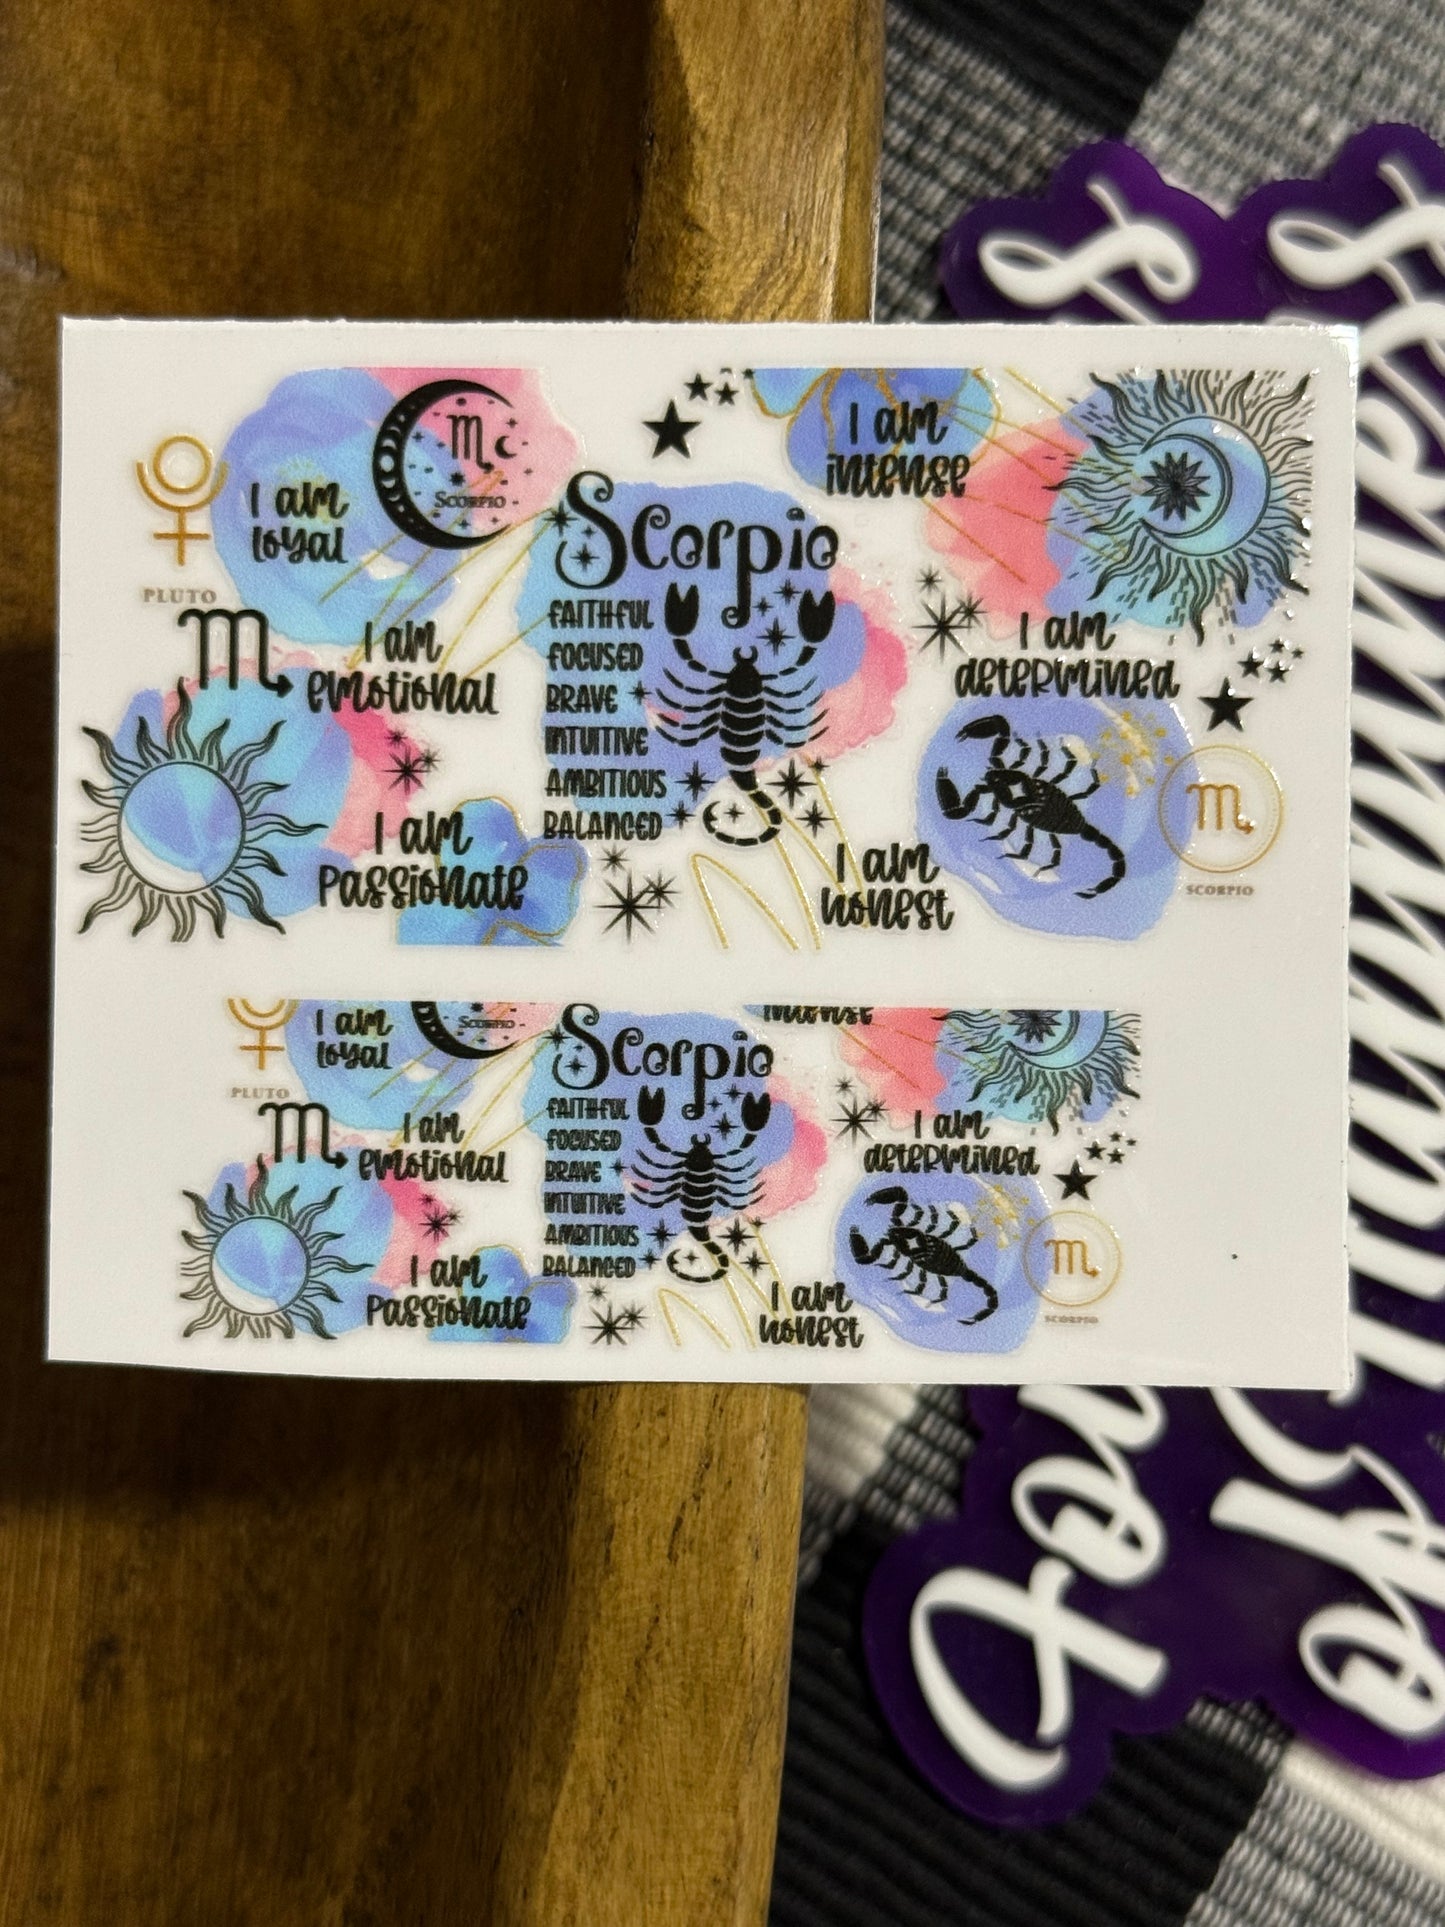 I am
loyal
SCORPIO
PLUTO
I am
emotional
I am
passionate
Scorpio
FAITHFUL
FOCUSED
BRAVE
INTUITIVE
AMBITIOUS
BALANCED
I am
intense
I am
determined
I am
honest
SCORPIO
I am
loyal
SCORPIO
PLUTO
I am
emotional
I am
passionate
Scorpio
FAITHFUL
FOCUSED
BRAVE
INTUITIVE
AMBITIOUS
BALANCED
intense
I am
determined
I am
honest
SCORPIO